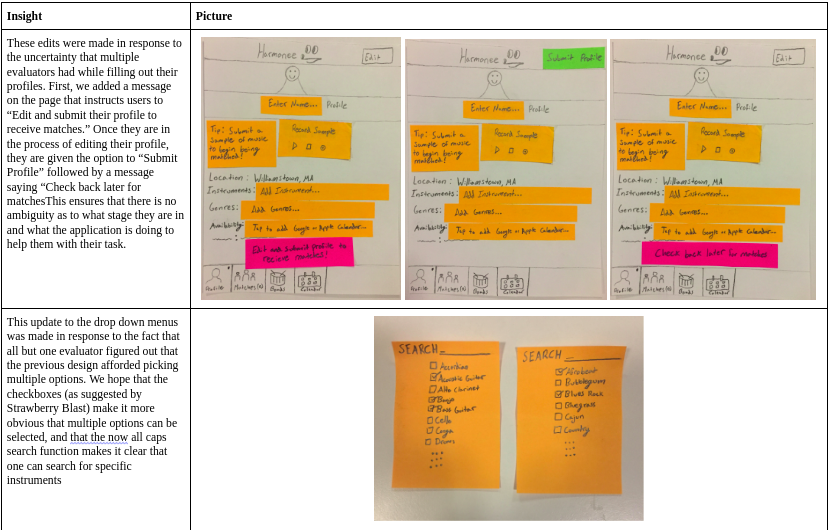 Insight
Picture
These edits were made in response to
the uncertainty that multiple
evaluators had while filling out their
profiles. First, we added a message
on the page that instructs users to
“Edit and submit their profile to
receive matches.” Once they are in
the process of editing their profile,
they are given the option to “Submit
Profile” followed by a message
saying “Check back later for
matchesThis ensures that there is no
ambiguity as to what stage they are in
and what the application is doing to
help them with their task.
Harmonee
Edit
Enter Name... Profile
Tip: Submit a
sample of music
to begin being
matched!
Record Sample
Location: Williamstown, MA
Instruments: Add Instrument...
Genres: Add Genres...
Availability: Tap to add Google or Apple Calendar...
Edit and submit profile to
recieve matches!
Profile Matches(s) Bands Calendar
Harmonee
Submit Profile
Enter Name... Profile
Tip: Submit a
sample of music
to begin being
matched!
Record Sample
Location: Williamstown, MA
Instruments: Add Instrument...
Genres: Add Genres...
Availability: Tap to add Google or Apple Calendar...
Profile Matches(s) Bands Calendar
Harmonee
Edit
Enter Name... Profile
Tip: Submit a
sample of music
to begin being
matched!
Record Sample
Location: Williamstown, MA
Instruments: Add Instrument...
Genres: Add Genres...
Availability: Tap to add Google or Apple Calendar...
Check back later for matches
Profile Matches(s) Bands Calendar
This update to the drop down menus
was made in response to the fact that
all but one evaluator figured out that
the previous design afforded picking
multiple options. We hope that the
checkboxes (as suggested by
Strawberry Blast) make it more
obvious that multiple options can be
selected, and that the now all caps
search function makes it clear that
one can search for specific
instruments
SEARCH
Accordion
Acoustic Guitar
Alto Clarinet
Banjo
Bass Guitar
Cello
Conga
Drum
SEARCH
Afrobeat
Bubblegum
Blues Rock
Bluegrass
Cajun
Country